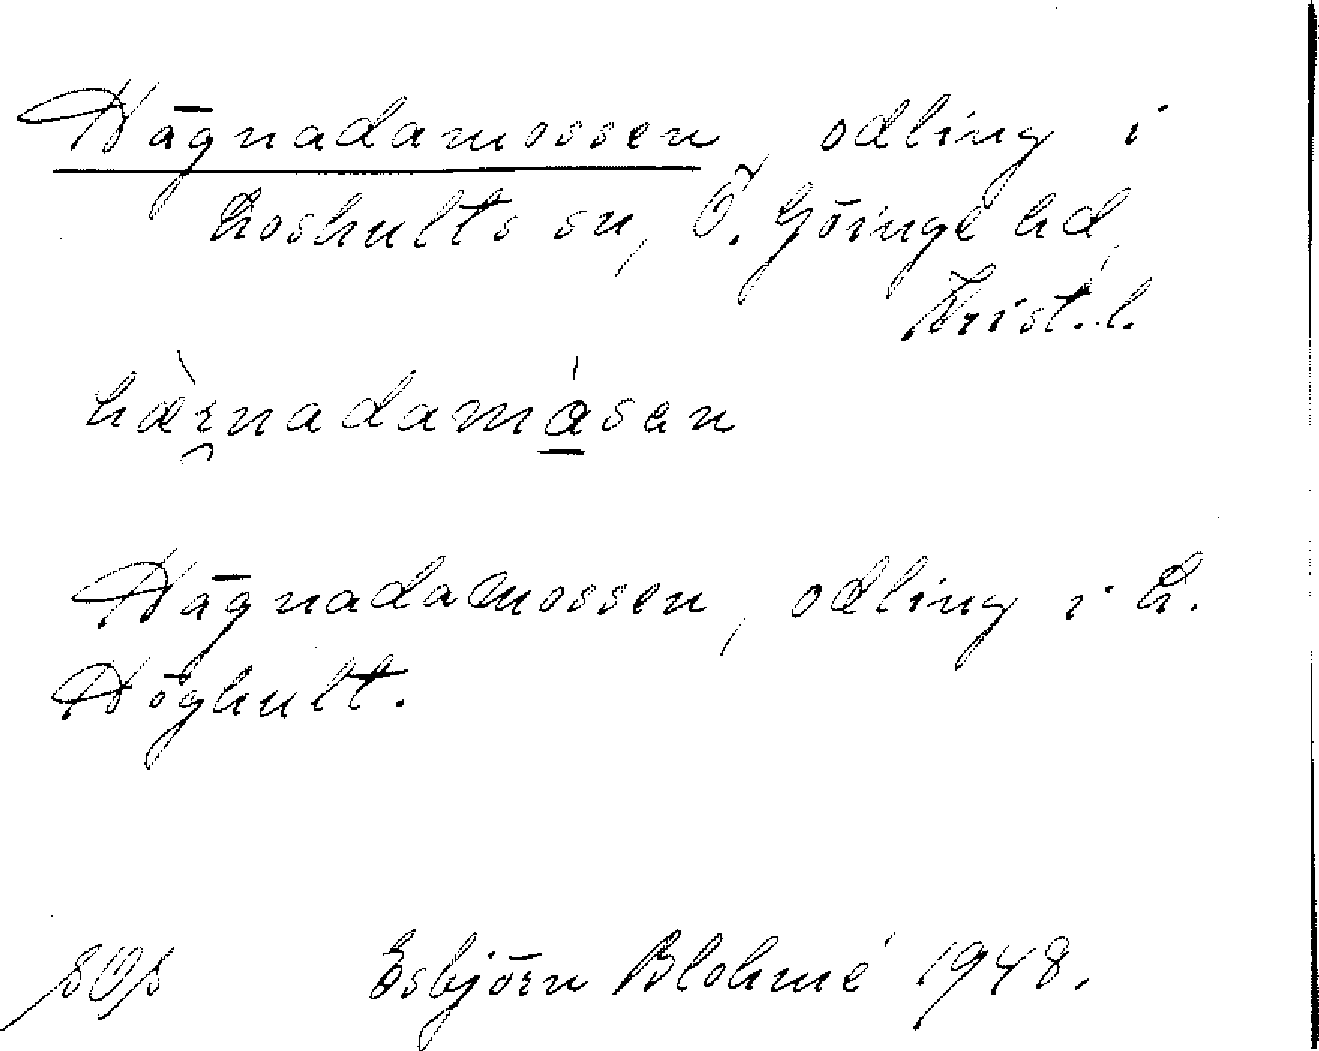 Hägnadamossen, odling i
Loshults sn, Ö. Göinge hd,
Krist. l.
hæ̀rnadamásen
Hägnadamossen, odling i L.
Höghult.
Esbjörn Blohmé 1948.